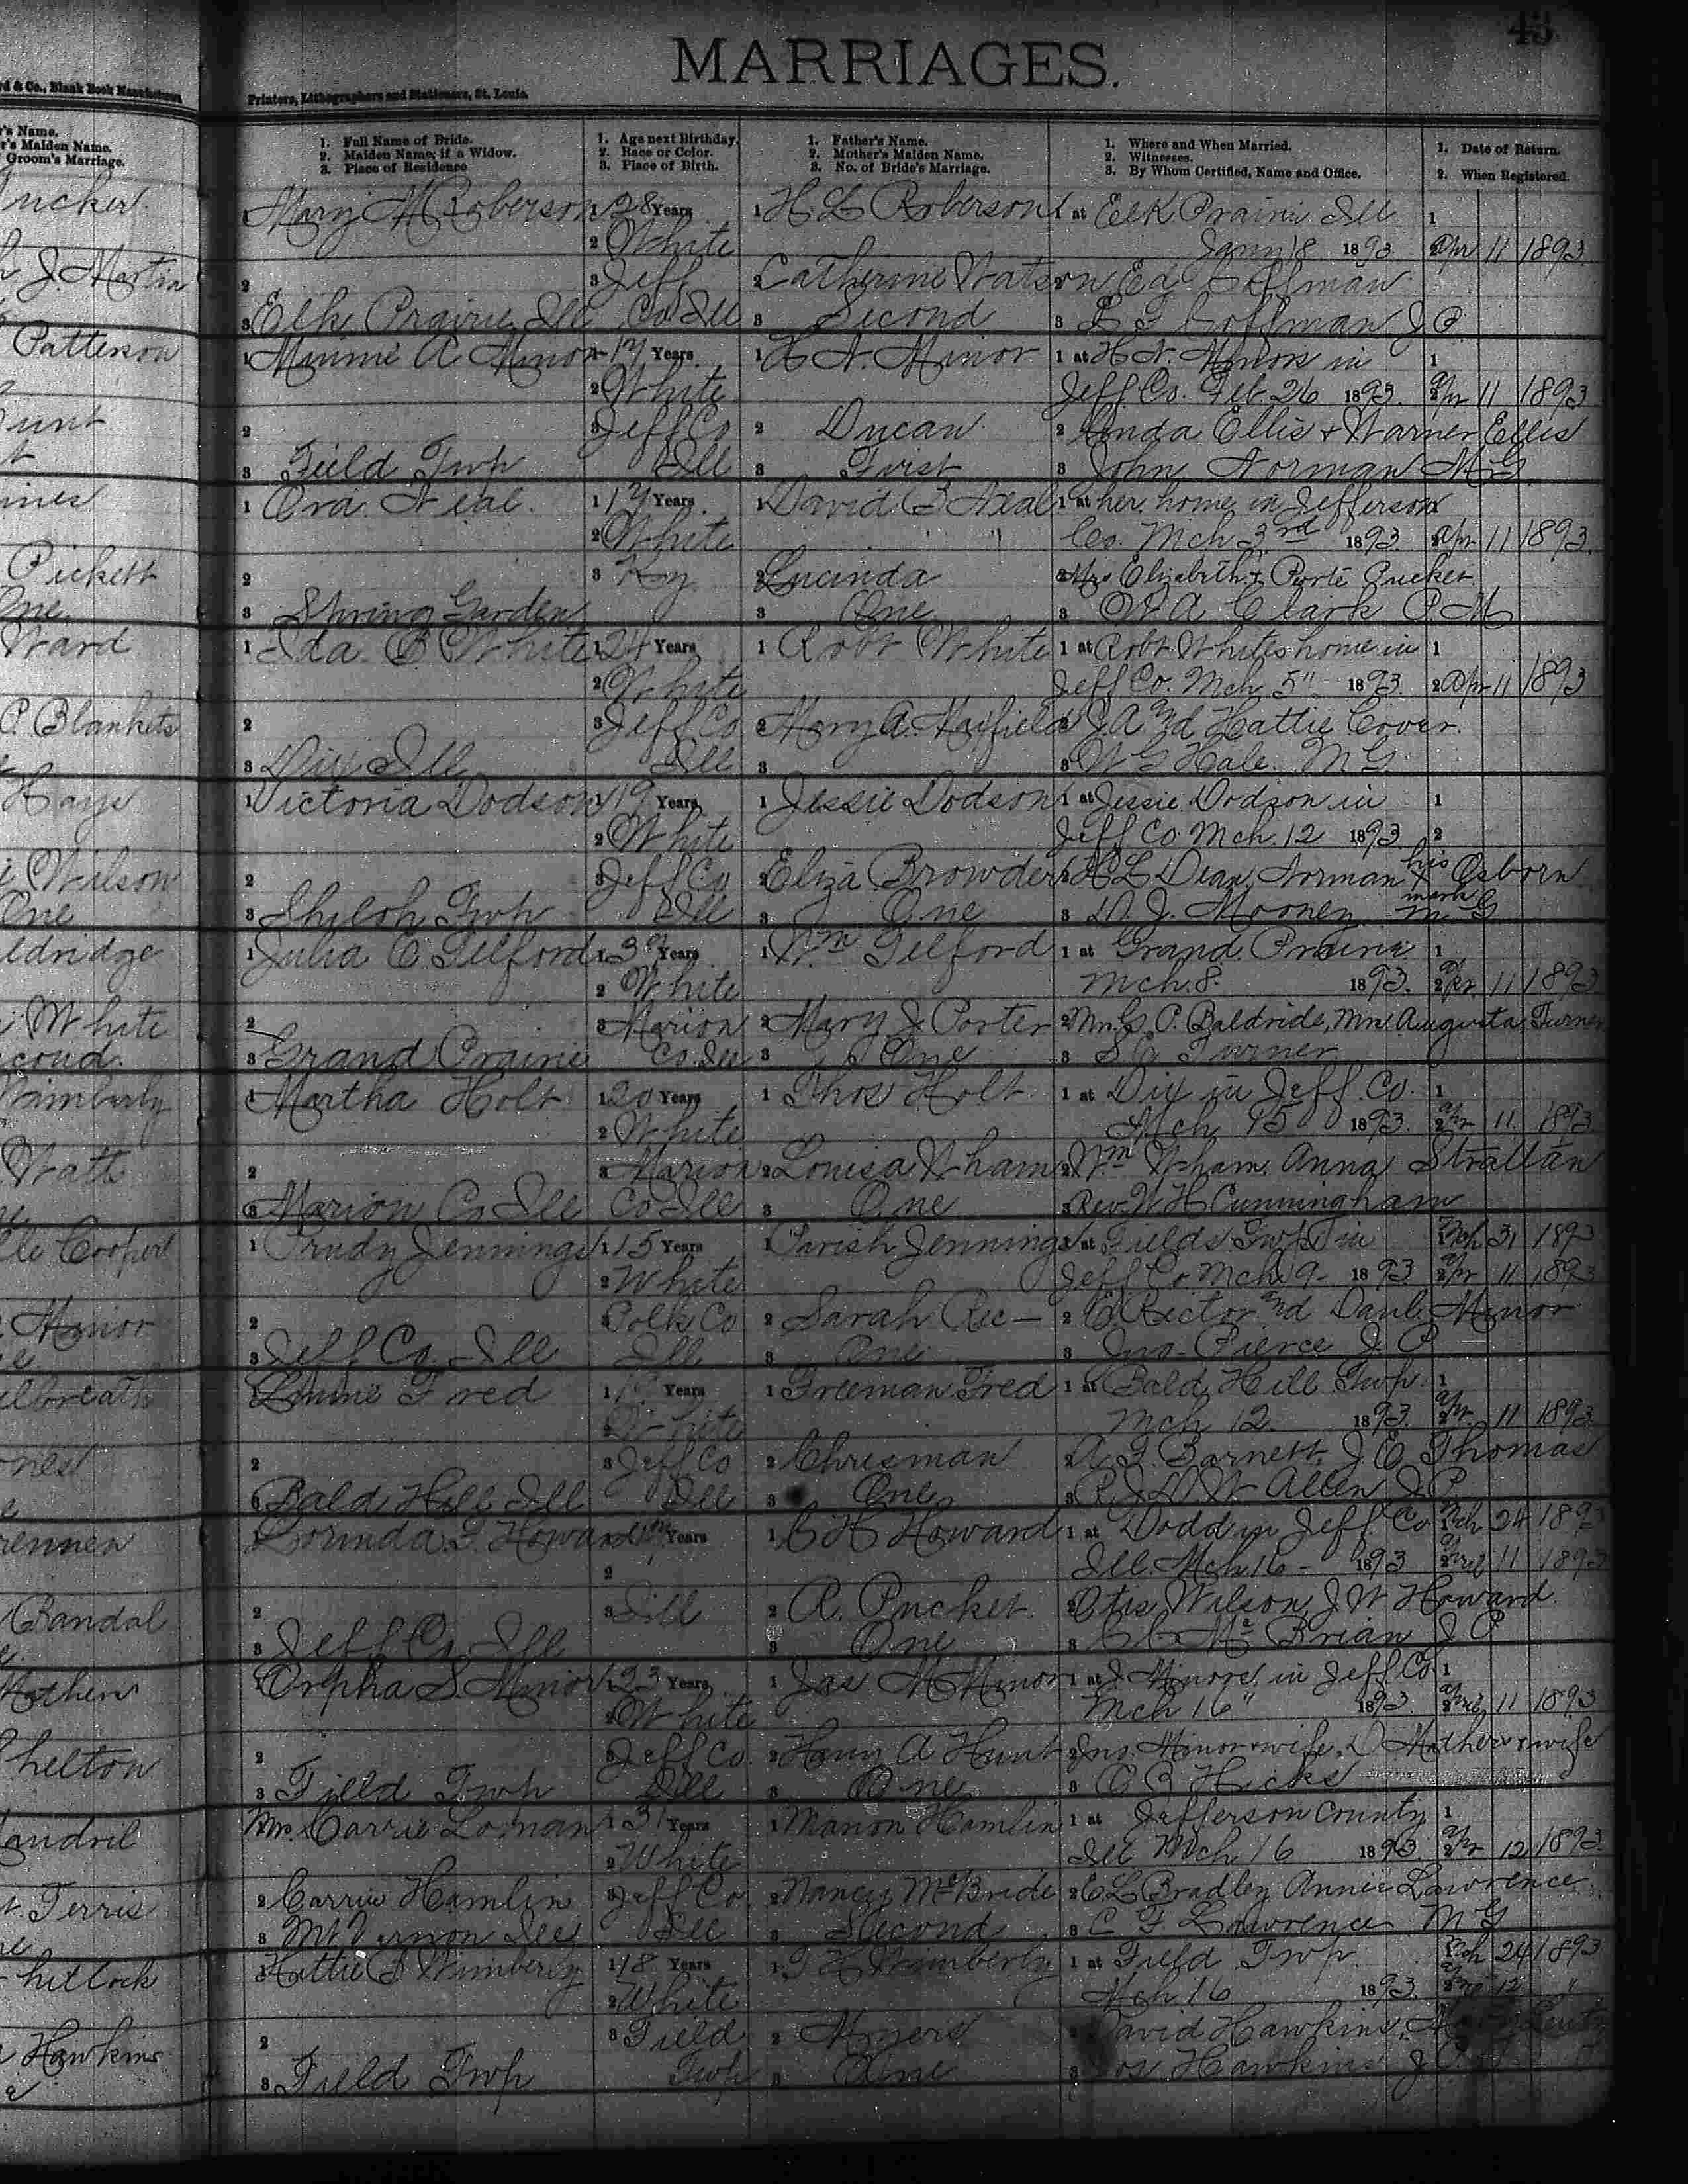 43
MARRIAGES.
rd & Co., Blank Book Manufacturers
Printers, Lithographers and Stationers, St. Louis.
r's Name.
r's Maiden Name.
Groom's Marriage.
1. Full Name of Bride.
2. Maiden Name, if a Widow.
3. Place of Residence
1. Age next Birthday.
2. Race or Color.
3. Place of Birth.
1. Father's Name.
2. Mother's Maiden Name.
3. No. of Bride's Marriage.
1. Where and When Married.
2. Witnesses.
3. By Whom Certified, Name and Office.
1. Date of Return.
2. When Registered.
ucker 1 Mary M Roberson 1 28 Years 1 H. L Roberson 1 at Elk Prairie Ill 1
2 White Jany 18 1893. 2 Apr 11 1893.
J. Martin 2 3 Jeff 2 Catherine Watson 2 Ed Coffman
3 Elk Prairie Ill Co Ill 3 Second 3 Coffman J P
Patterson 1 Minnie A Minor 1 17 Years. 1 H N. Minor 1 at H N. Minors in 1
2 White Jeff Co. Feb. 26 1893. 2 Apr 11 1893
unt 2 3 Jeff Co 2 Ducan 2 Linda Ellis + Warner Ellis
3 Field Twp Ill 3 First 3 John Norman M G
ines 1 Ora Neal. 1 17 Years. 1 David B Neal 1 at her home in Jefferson
2 White Co. Mch 3rd 1893. 2 Apr 11 1893.
Pickett 2 3 Ky 2 Lucinda 2 Mrs Elizabeth + Porte Pucket
One. 3 Spring Garden 3 One 3 W A Clark P. M
Ward 1 Ida B White 1 24 Years 1 Robt White 1 at Robt Whites home in 1
2 White Jeff Co. Mch 5" 1893. 2 Apr 11 1893
P. Blankets 2 3 Jeff Co 2 Mary A. Mayfield 2 J. A and Hattie Cover.
3 Dix Ill Ill 3 3 W G Hale. M G.
Hays 1 Victoria Dodson 1 19 Years, 1 Jessie Dodson 1 at Jessie Dodson in 1
2 White Jeff Co. Mch. 12 1893. 2
Wilson 2 3 Jeff Co 2 Eliza Browder 2 H L Dean, Norman his x mark Osborn
One 3 Shiloh Twp Ill 3 One 3 D. J. Mooney M G
ldridge 1 Julia C Telford 1 Years 1 Wm Telford 1 at Grand Prairie 1
2 White Mch. 8. 1893. 2 Apr. 11 1893
White 2 3 Marion 2 Mary J Porter 2 Mrs. G. P. Baldride, Mrs. Augusta Turner
cond. 3 Grand Prairie Co. Ill 3 One 3 S C Turner
imberly 1 Martha Holt 1 20 Years 1 Thos Holt 1 at Dix in Jeff Co. 1
2 White Mch 15 1893. 2 Apr 11. 1893
Watts 2 3 Marion 2 Louisa Wham 2 Wm Wham. Anna Strattan
3 Marion Co Ill Co Ill 3 One 3 Rev. W H Cunningham
Cooper 1 Trudy Jennings 1 15 Years 1 Parish Jennings 1 at Fields Twp in 1 Mch 31 1893
2 White Jeff Co Mch 9- 1893 2 Apr 11 1893
Minor 2 3 Polk Co 2 Sarah Rec— 2 C Rector and Danl. Minor
3 Jeff Co. Ill Ill 3 One 3 Jno. Pierce J. P
ilbreath 1 Fred 1 Years 1 Freeman Fred 1 at Bald Hill Twp. 1
2 White Mch 12. 1893. 2 Apr. 11 1893.
ones 2 3 Jeff Co 2 Chrisman 2 A. F. Barnett, J. E Thomas
3 Bald Hill Ill Ill 3 One 3 R. J. D. W Allen J. P
rennen 1 Corinda F. Howard 1 Years 1 C H Howard 1 at Dodd in Jeff. Co 1 Mch 24 1893
2 Ill. Mch 16- 1893 2 April 11 1893
Randal 2 3 Ill 2 R. Pucket. 2 Otis Wilson, J. W Howard.
3 Jeff Co. Ill 3 One 3 Mc Brian J P
Mothen 1 Orpha S. Minor 1 23 Years 1 Jas M Minor 1 at J. Minors in Jeff. Co. 1
2 White Mch 16" 1893. 2 April, 11 1893.
helton 2 3 Jeff Co. 2 A Hunt 2 Jno. Minor & wife, D Mothen & wife
3 Field Twp Ill 3 One 3 Hicks
andril Mrs. Carrie Loman 1 31 Years 1 Marion Hamlin 1 at Jefferson County 1
2 White Ill Mch 16 1893 2 Apr 12 1893.
Ferris 2 Carrie Hamlin 3 Jeff Co. 2 Nancy McBride 2 C L Bradley Annie Lawrence.
3 Mt Vernon Ill Ill 3 Second 3 C F. Lawrence M G
hitlock 1 Hettie Wimberly 1 18 Years 1 Wimberly 1 at Field Twp. 1 Mch 24 1893
2 White Mch 16 1893. 2 12 "
Hawkins. 2 3 Field 2 Myers 2 David Hawkins,
3 Field Twp Twp 3 One 3 Hawkins J